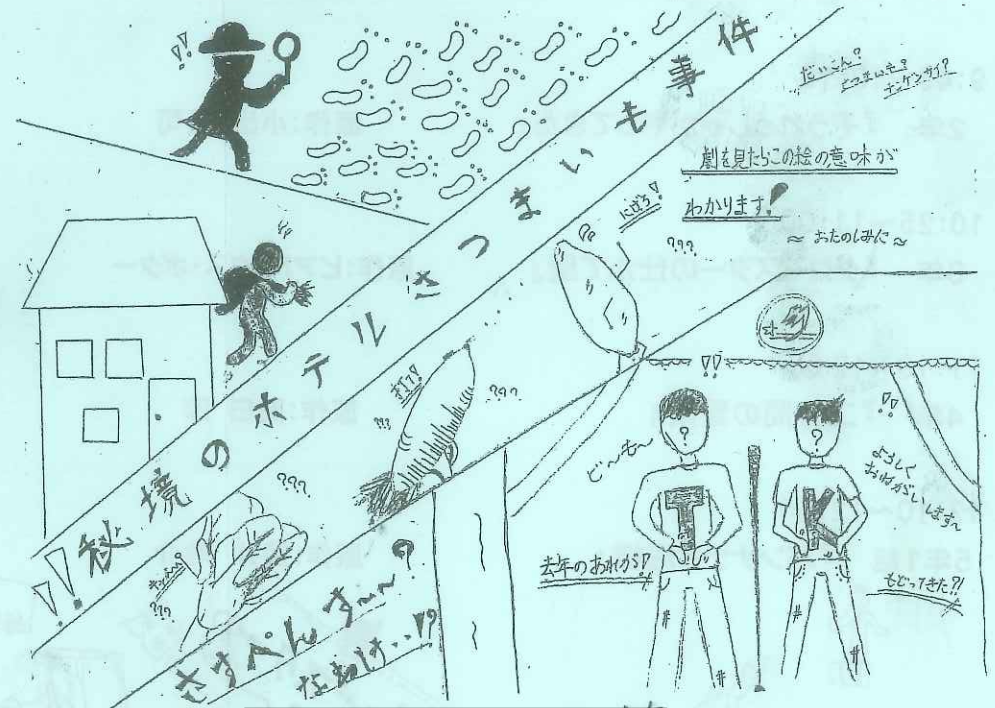 !!秘境のホテルさつまいも事件
だいこん?
さつまいも?
チンゲンサイ?
劇を見たらこの絵の意味が
わかります!
～おたのしみに～
!!
にげろ!
???
???
???
???
???
さすぺんす～～?
なわけ・・!?
!!
!!
?
?
ど～も～
よろしく
おねがいします～
T
K
去年のあれから!
もどってきた?!